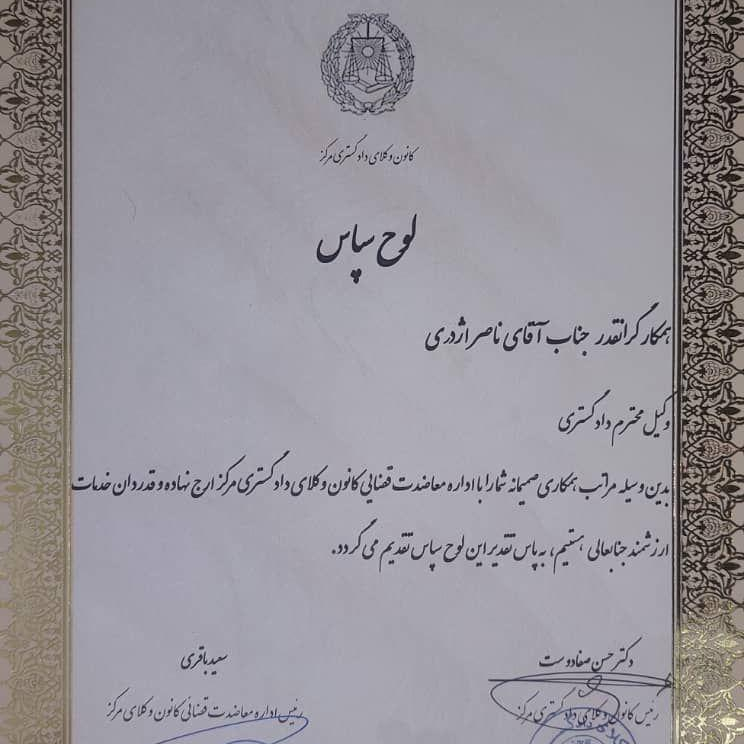 کانون وکلای دادگستری مرکز
لوح سپاس
همکار گرانقدر جناب آقای ناصر اژدری
وکیل محترم دادگستری
بدین وسیله مراتب همکاری صمیمانه شما را با اداره معاضدت قضایی کانون وکلای دادگستری مرکز ارج نهاده و قدردان خدمات
ارزشمند جنابعالی هستیم، به پاس تقدیر این لوح سپاس تقدیم می گردد.
دکتر حسن صفادوست
رئیس کانون وکلای دادگستری مرکز
سعید باقری
رئیس اداره معاضدت قضائی کانون وکلای دادگستری مرکز